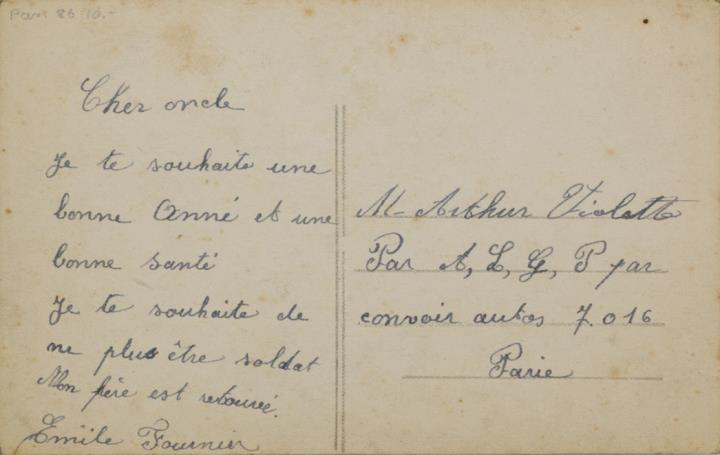 Paris 86 10.-
Cher oncle
Je te souhaite une
bonne Anné et une
bonne santé
Je te souhaite de
ne plus être soldat
Mon père est
Emile Fournier
M- Arthur Violette
Par A, L, G, P par
convoir autos 7.016
Parie